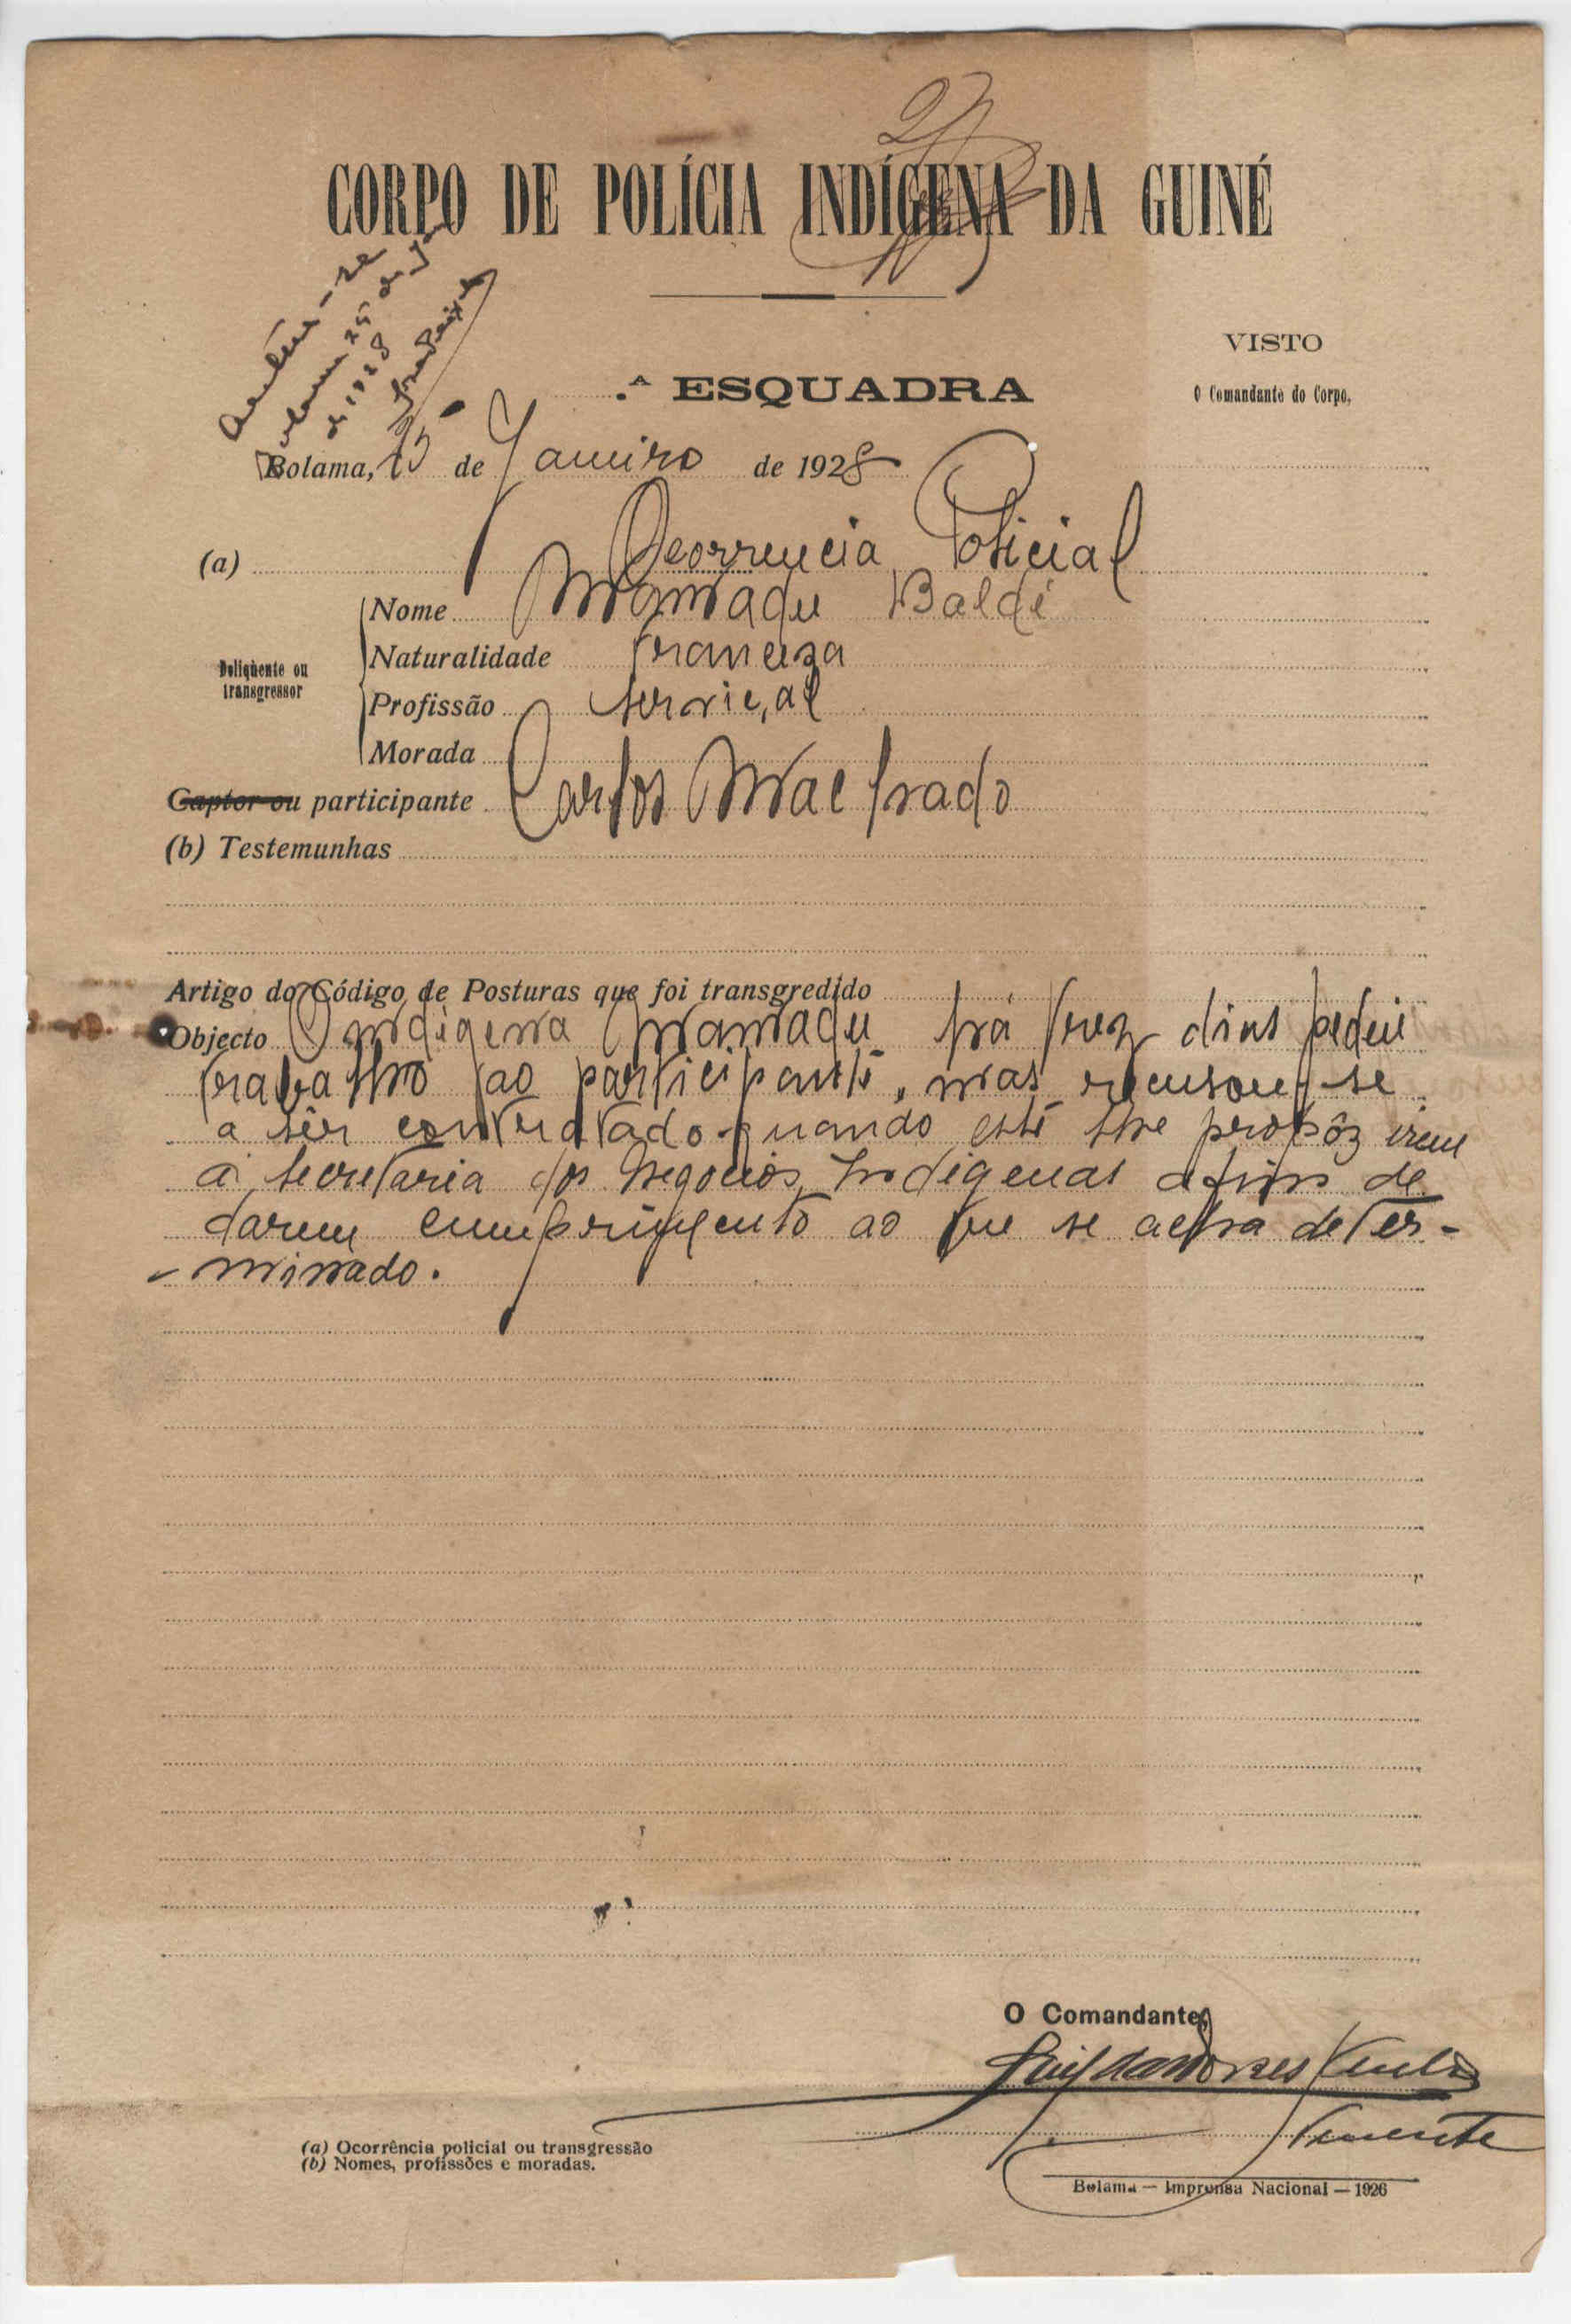 CORPO DE POLÍCIA INDÍGENA DA GUINÉ
VISTO
O Comandante do Corpo,
.ª ESQUADRA
Bolama, 25 de Janeiro de 1928
(a) Ocorrencia Policial
Delinqùente ou transgressor
Nome Mamadu Baldé
Naturalidade francesa
Profissão serviçal
Morada
Captor ou participante Carlos Machado
(b) Testemunhas
Artigo do Código de Posturas que foi transgredido
Objecto O indigena Mamadu há trez dias pediu
trabalho ao participante, mas recusou-se
a sêr contratado quando este lhe propôz irem
á secretaria dos Negocios Indigenas afim de
darem cumprimento ao que se acha deter-
-minado.
O Comandante,
Tenente
(a) Ocorrência policial ou transgressão
(b) Nomes, profissões e moradas.
Bolama — Imprensa Nacional — 1926